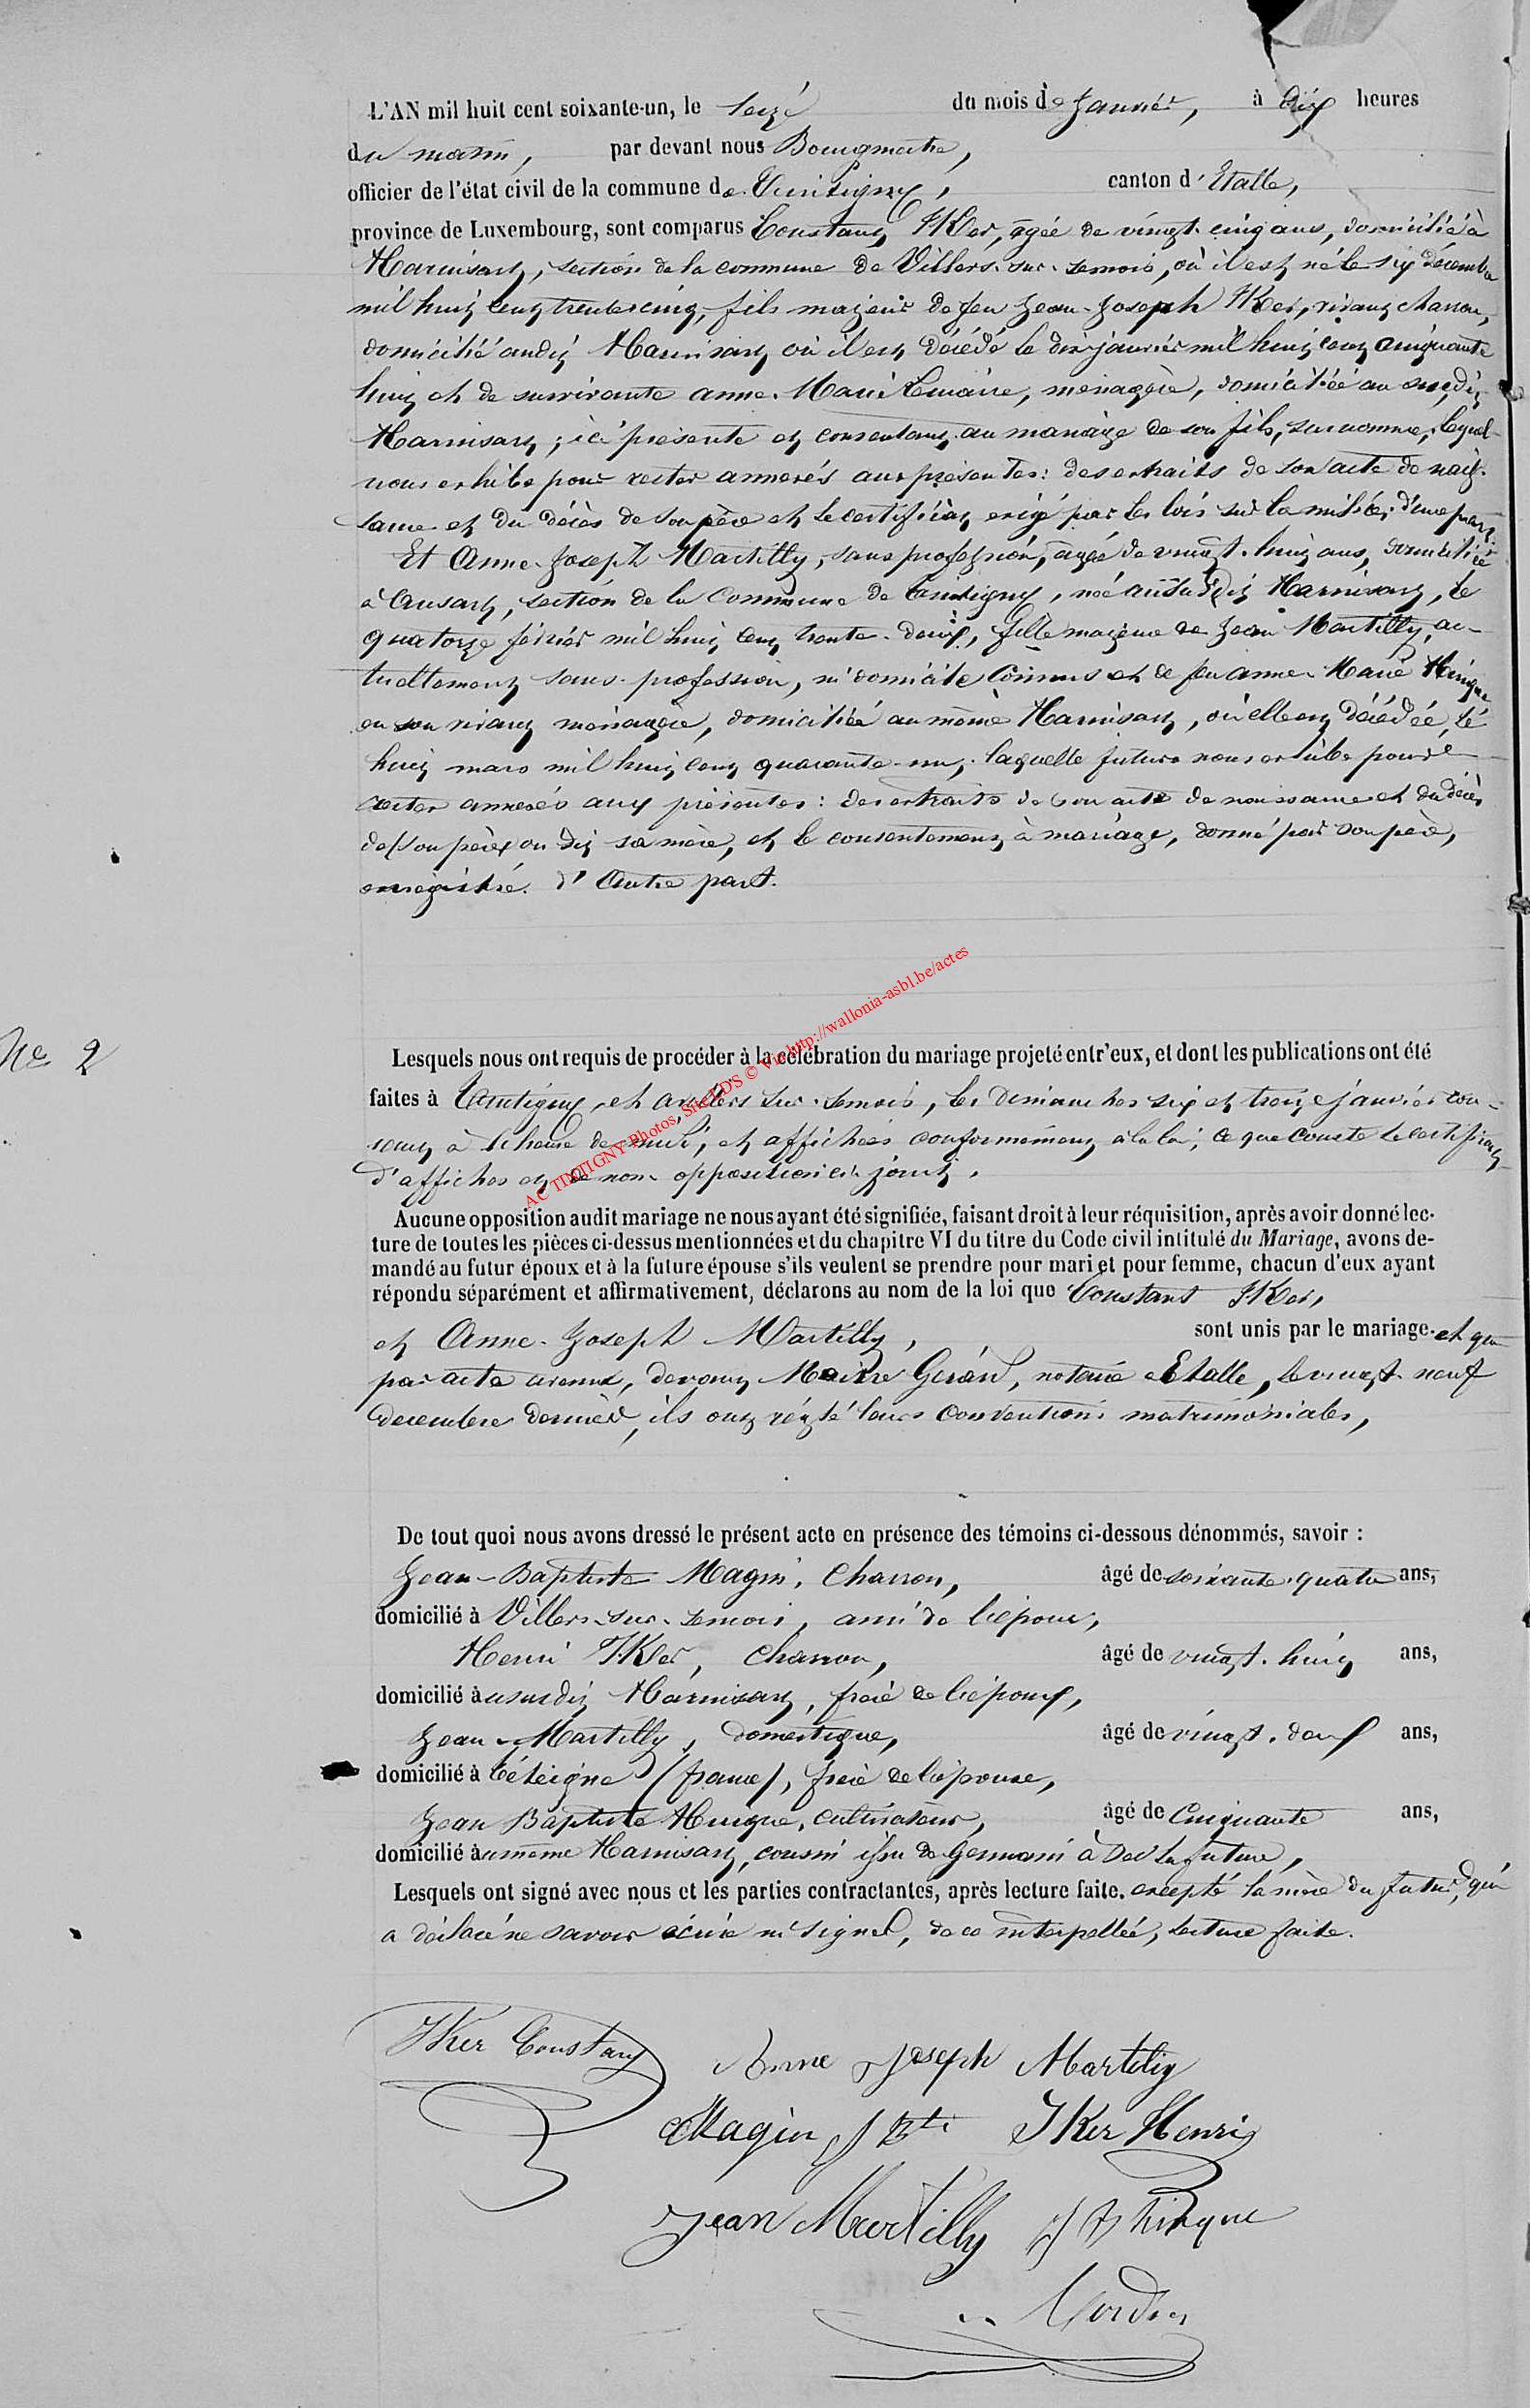 L'AN mil huit cent soixante-un, le seize du mois de Janvier, à dix heures
du matin, par devant nous Bourgmestre,
officier de l'état civil de la commune de Tintigny, canton d'Etalle,
province de Luxembourg, sont comparus Constant IKer, âgée de vingt-cinq ans, domicilié à
Harnisart, section de la commune de Villers-sur-Semois, où il est né le six décembre
mil huit cent trente-cinq, fils majeur de feu Jean-Joseph IKer, vivant charron,
domicilié audit Harnisart où il est décédé le dix janvier mil huit cent cinquante
huit et de survivante anne-Marie Lemaire, menagère, domiciliée au susdit
Harnisart, ici présente et consentant au mariage de son fils, surnommé, lequel
nous exhibe pour rester annexés aux présentes: des extraits de son acte de nais-
sance et du décès de son père et le certificat exigé par les lois sur la milice, d'une part.
Et Anne-Joseph Martilly, sans profession, âgée de vingt-huit ans, domiciliée
à Ansart, section de la Commune de Tintigny, née au susdit Harnisart, le
quatorze février mil huit cent trente-deux, fille majeure de Jean Martilly, ac-
tuellement sans profession, ni domicile connus et de feu anne-Marie Hinque
en son vivant menagère, domiciliée au même Harnisart, où elle est décédée, le
huit mars mil huit cent quarante-un, laquelle future nous exhibe pour
rester annexés aux présentes: des extraits de son acte de naissance et du décès
de son père ou dit sa mère, et le consentement à mariage, donné par son père,
enregistré. d'Autre part.
No 2
Lesquels nous ont requis de procéder à la célébration du mariage projeté entr'eux, et dont les publications ont été
faites à Tintigny, et à Villers sur-Semois, les dimanches six et treize janvier cou-
rant, à l'heure de midi, et affichées conformément à la loi, ce que conste le certificat
d'affiches et de non-opposition ci-joint.
AC TINTIGNY Photos, Site LDS © Via http://wallonia-asbl.be/actes
Aucune opposition audit mariage ne nous ayant été signifiée, faisant droit à leur réquisition, après avoir donné lec-
ture de toutes les pièces ci-dessus mentionnées et du chapitre VI du titre du Code civil intitulé du Mariage, avons de-
mandé au futur époux et à la future épouse s'ils veulent se prendre pour mari et pour femme, chacun d'eux ayant
répondu séparément et affirmativement, déclarons au nom de la loi que Constant IKer,
et Anne-Joseph Martilly, sont unis par le mariage. et que
par acte avenu, devant Maître Gérard, notaire à Etalle, le vingt-neuf
decembre dernier, ils ont réglé leurs conventions matrimoniales,
De tout quoi nous avons dressé le présent acte en présence des témoins ci-dessous dénommés, savoir :
Jean-Baptiste Magin, Charron, âgé de soixante-quatre ans,
domicilié à Villers-sur-Semois, ami de l'époux,
Henri IKer, Charron, âgé de vingt-huit ans,
domicilié au susdit Harnisart, frère de l'époux,
Jean-Martilly, domestique, âgé de vingt-deux ans,
domicilié à (france), frère de l'épouse,
Jean Baptiste Hinque, cultivateur, âgé de Cinquante ans,
domicilié au même Harnisart, cousin issu de Germain à la future,
Lesquels ont signé avec nous et les parties contractantes, après lecture faite. excepté la mère du futur, qui
a déclaré ne savoir écrire ni signer, de ce interpellée, lecture faite.
IKer Constant
Anne Joseph Martilly
Magin J Bte IKer Henri
Jean Martilly J B hinque